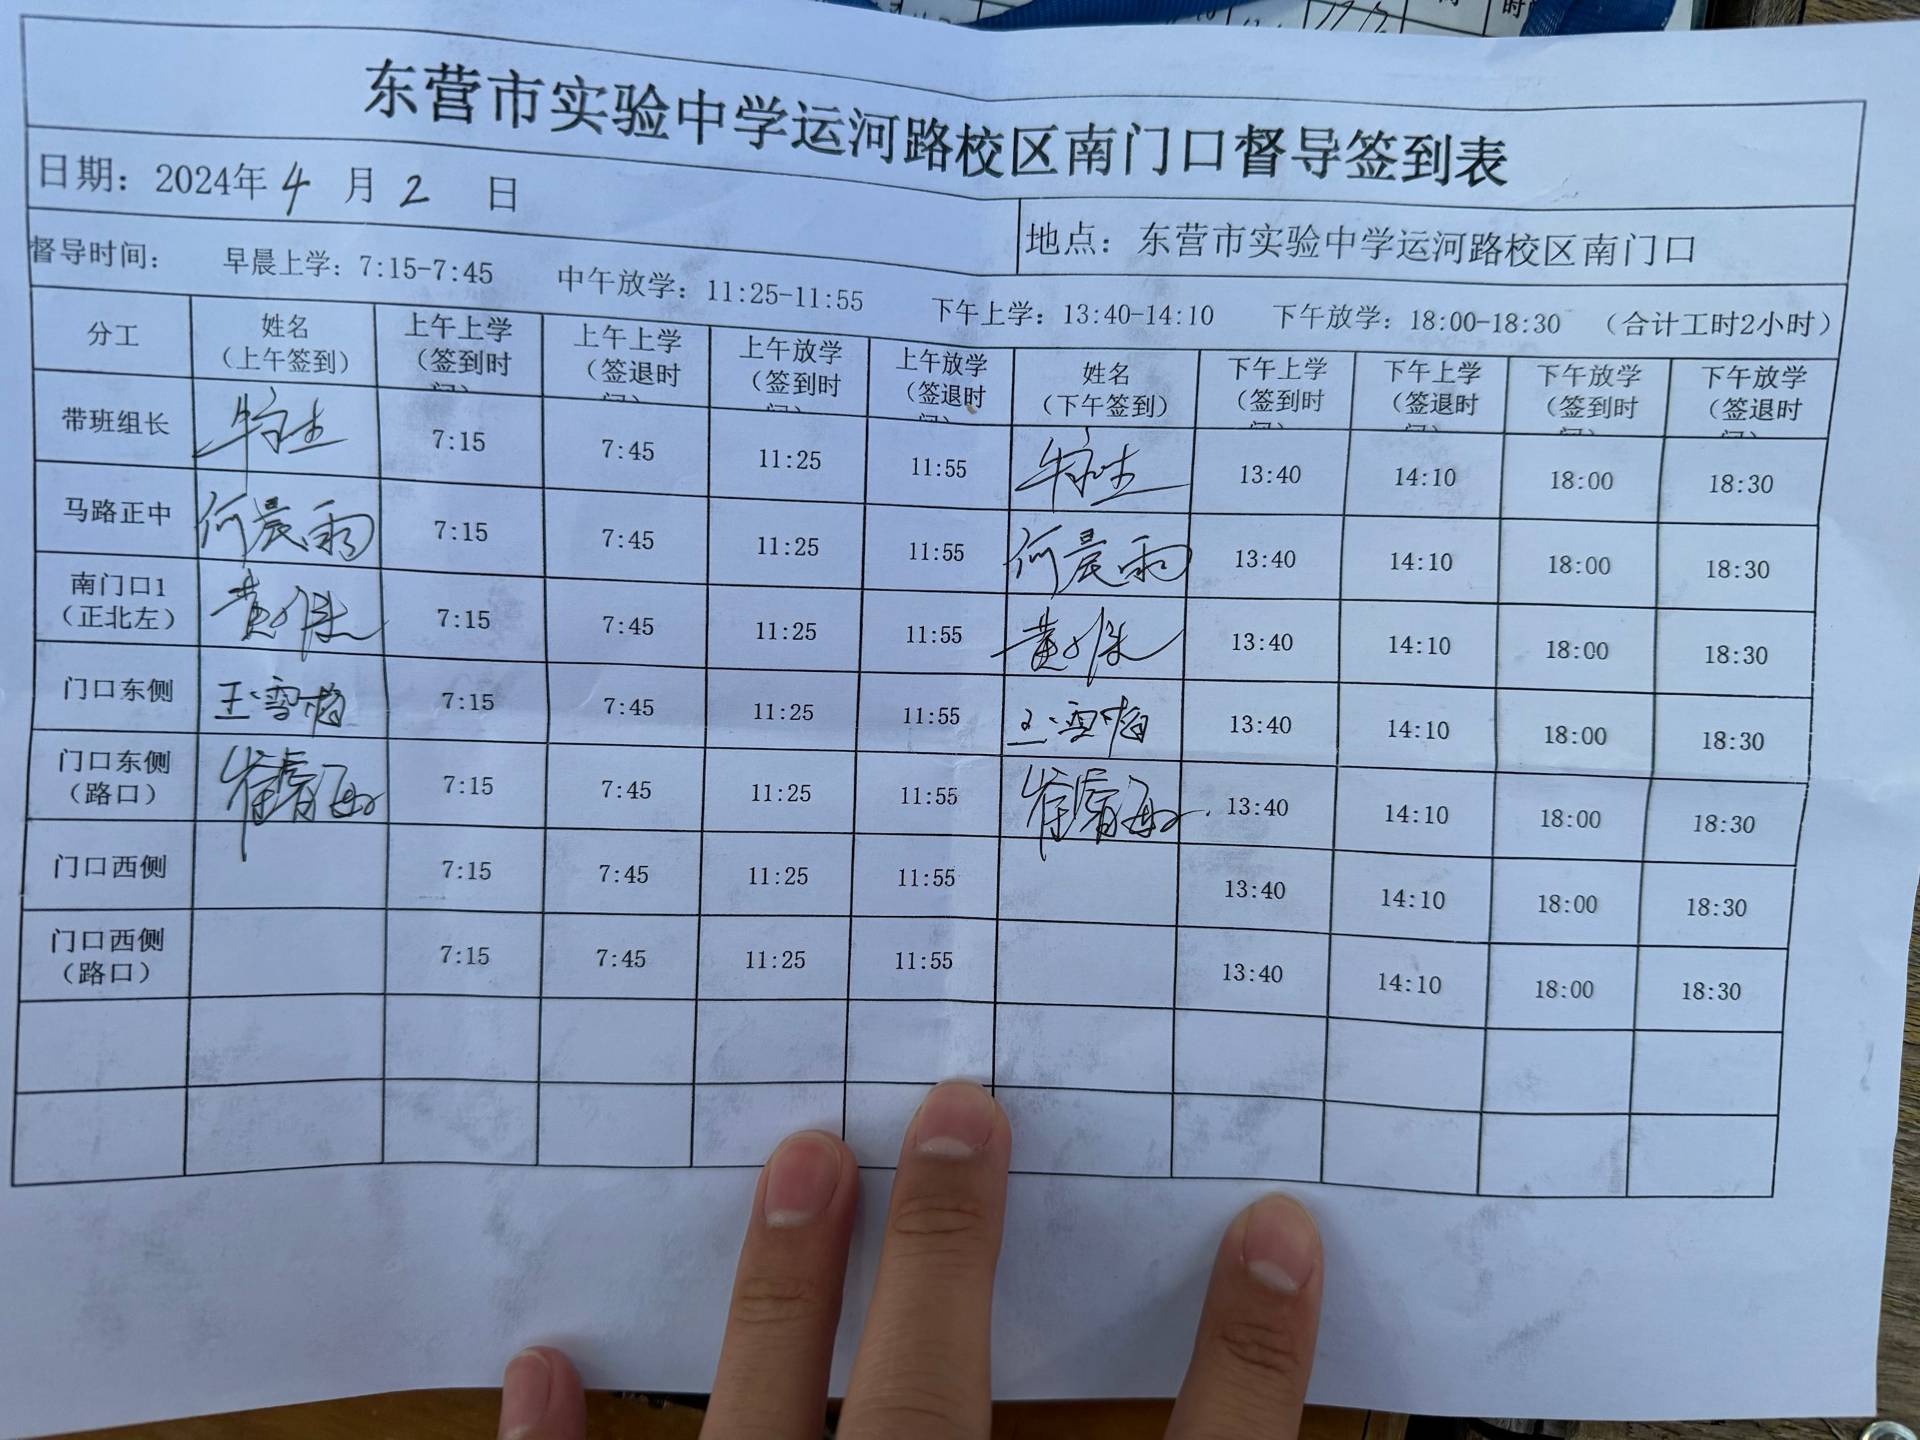 东营市实验中学运河路校区南门口督导签到表
日期：2024年4月2日
地点：东营市实验中学运河路校区南门口
督导时间： 早晨上学：7:15-7:45 中午放学：11:25-11:55 下午上学：13:40-14:10 下午放学：18:00-18:30 （合计工时2小时）
分工 姓名（上午签到） 上午上学（签到时间） 上午上学（签退时间） 上午放学（签到时间） 上午放学（签退时间） 姓名（下午签到） 下午上学（签到时间） 下午上学（签退时间） 下午放学（签到时间） 下午放学（签退时间）
带班组长 7:15 7:45 11:25 11:55 13:40 14:10 18:00 18:30
马路正中 何晨雨 7:15 7:45 11:25 11:55 何晨雨 13:40 14:10 18:00 18:30
南门口1（正北左） 7:15 7:45 11:25 11:55 13:40 14:10 18:00 18:30
门口东侧 王雪梅 7:15 7:45 11:25 11:55 王雪梅 13:40 14:10 18:00 18:30
门口东侧（路口） 7:15 7:45 11:25 11:55 13:40 14:10 18:00 18:30
门口西侧 7:15 7:45 11:25 11:55 13:40 14:10 18:00 18:30
门口西侧（路口） 7:15 7:45 11:25 11:55 13:40 14:10 18:00 18:30